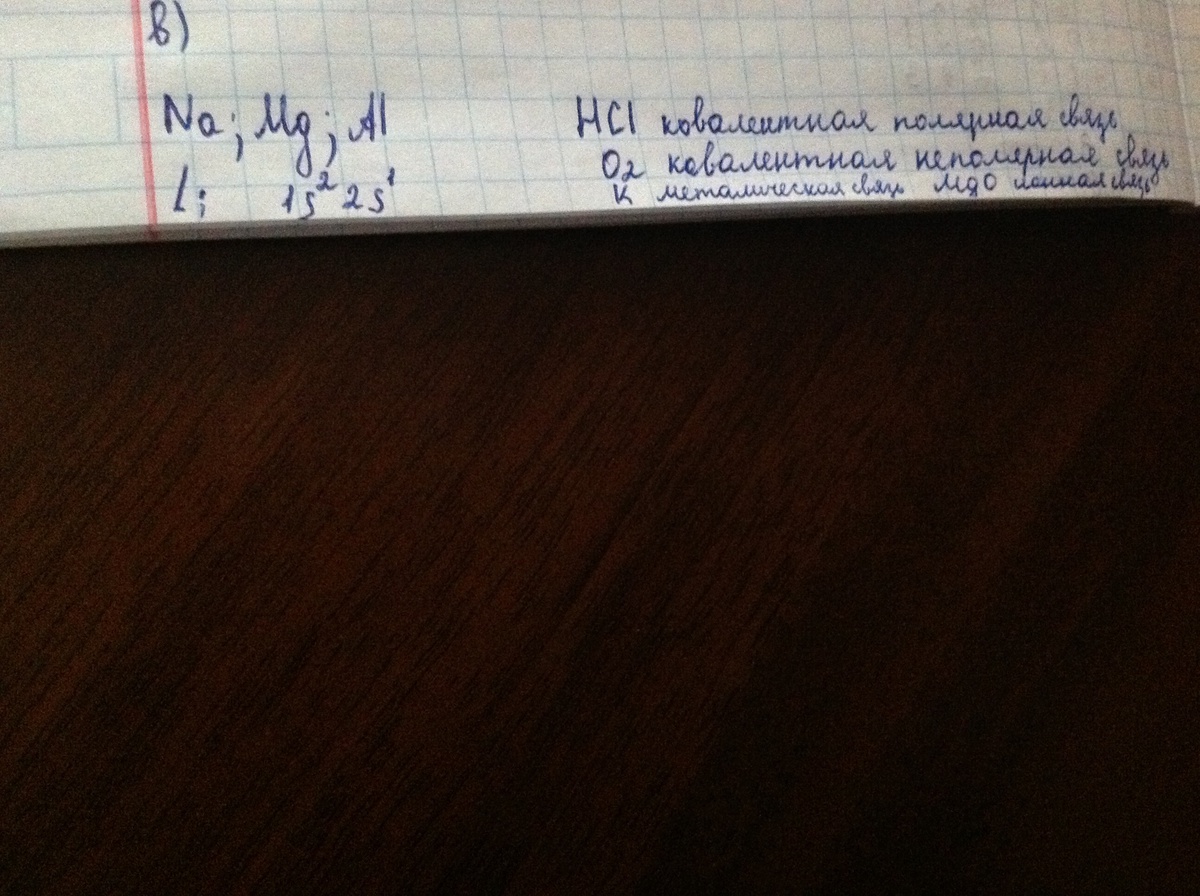 в)
Na; Mg; Al
Li 1s² 2s¹
HCl ковалентная полярная связь
O₂ ковалентная неполярная связь
K металическая связь MgO ионная связь